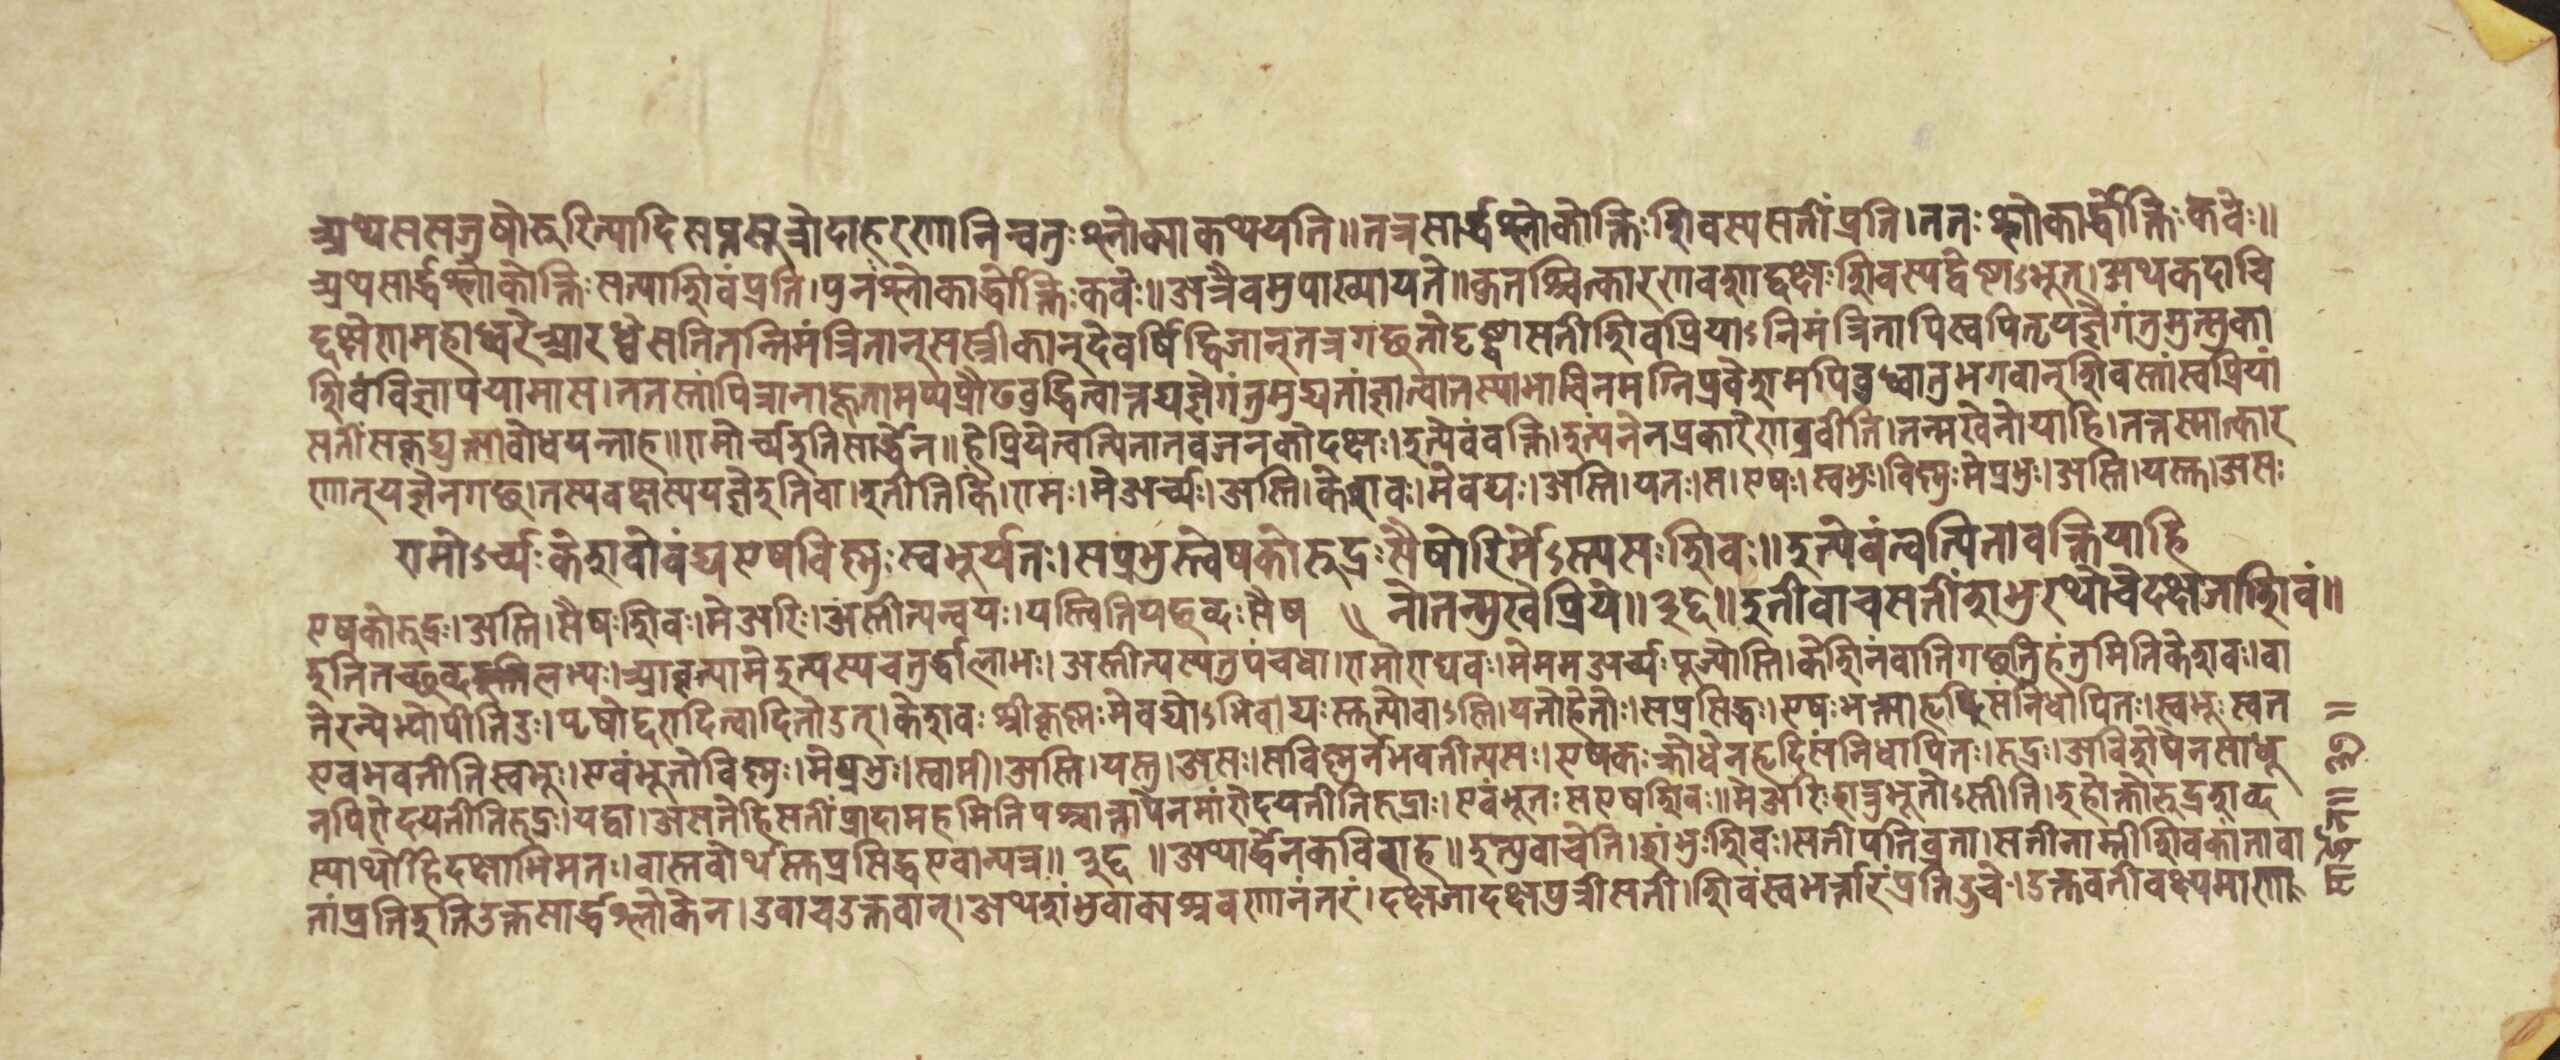 अथ ससजुषोरुरित्यादि सप्तसूत्रोदाहरणानि चतुःश्लोक्या कथयति॥ तत्र सार्द्धश्लोकोक्तिः शिवस्य सतीं प्रति। ततः श्लोकार्द्धोक्तिः कवेः॥
अथ सार्द्धश्लोकोक्तिः सत्या शिवं प्रति। पुनः श्लोकार्द्धोक्तिः कवेः॥ अत्रैवमुपाख्यायते॥ कुतश्चित्कारणवशाद्दक्षः शिवस्य द्वेष्टाऽभूत्। अथ कदाचि
द्दक्षेण महाध्वरे आरब्धे सति तन्निमंत्रितान् सस्त्रीकान् देवर्षिद्विजान् तत्र गछतो दृष्ट्वा सती शिवप्रियाऽनिमंत्रितापि स्वपितृयज्ञे गंतुमुत्सुका
शिवं विज्ञापयामास। ततस्तां पित्रानाहूतामप्यप्रौढबुद्धित्वात्तद्यज्ञे गंतुमुद्यतां ज्ञात्वा तस्या भाविनमग्निप्रवेशमपि बुध्वा तु भगवान् शिवस्तां स्वप्रियां
सतीं सकृद्युक्त्या बोधयन्नाह॥ रामोर्च्य इति सार्द्धेन॥ हे प्रिये त्वत्पिता तव जनको दक्षः। इत्येवं वक्ति। इत्यनेन प्रकारेण ब्रवीति। तन्मखे नो याहि। तत्तस्मात्कार
णात् यज्ञे न गछ। तस्य वक्ष्यस्य यज्ञे इति वा। इतीति किं। रामः। मे अर्च्यः। अस्ति। केशवः। मे वंद्यः। अस्ति। यतः। स। एषः। स्वभूः। विष्णुः मे प्रभुः। अस्ति। यस्तु। असः
रामोऽर्च्यः केशवो वंद्य एष विष्णुः स्वभूर्यतः। स प्रभुस्त्वेषको रुद्रः सैषोरिर्मेऽस्त्यसः शिवः॥ इत्येवं त्वत्पिता वक्ति याहि
नो तन्मखे प्रिये॥ ३६॥ इतीवाच सतीं शंभुरथोचे दक्षजा शिवं॥
एषको रुद्रः। अस्ति। सैषः शिवः। मे अरिः। अस्तीत्यन्वयः। यस्त्विति यछब्दः सैष
इति तच्छब्दलभ्यः। आवृत्त्या मे इत्यस्य चतुर्द्धा लाभः। अस्तीत्यस्य तु पंचधा। रामो राघवः। मे मम अर्च्यः पूज्योस्ति। केशिनं वाति गछति हंतुमिति केशवः। वा
तेरन्येभ्योपीति डः। पृषोदरादित्वादितोऽत्। केशवः श्रीकृष्णः मे वंद्योऽभिवाद्यः स्तुत्यो वाऽस्ति। यतो हेतोः। स प्रसिद्धः। एषः भक्त्या हृदि संनिधापितः। स्वभूः स्वत
एव भवतीति स्वभूः। एवंभूतो विष्णुः। मे प्रभुः। स्वामी। अस्ति। यस्तु। असः। स विष्णुर्न भवतीत्यसः। एषकः क्रोधेन हृदि संनिधापितः। रुद्रः। अविशेषेण साधू
नपि रोदयतीति रुद्रः। यद्वा। असते हि सतीं प्रादामहमिति पश्चात्तापेन मां रोदयतीति रुद्रः। एवंभूतः स एष शिवः॥ मे अरिः शत्रुभूतोऽस्तीति। इहोक्तो रुद्रशब्द
स्यार्थो हि दक्षाभिमतः। वास्तवोर्थस्तु प्रसिद्ध एवान्यत्र॥ ३६ ॥ अथार्द्धेन कविराह॥ इत्युवाचेति। शंभुः शिवः। सती पतिव्रता। सतीनाम्नी शिवकांता वा
तां प्रति इति उक्तसार्द्धश्लोकेन। उवाच उक्तवान्। अथ शंभुवाक्यश्रवणानंतरं। दक्षजा दक्षपुत्री सती। शिवं स्वभर्त्तारं प्रति ऊचे। उक्तवती वक्ष्यमाणं